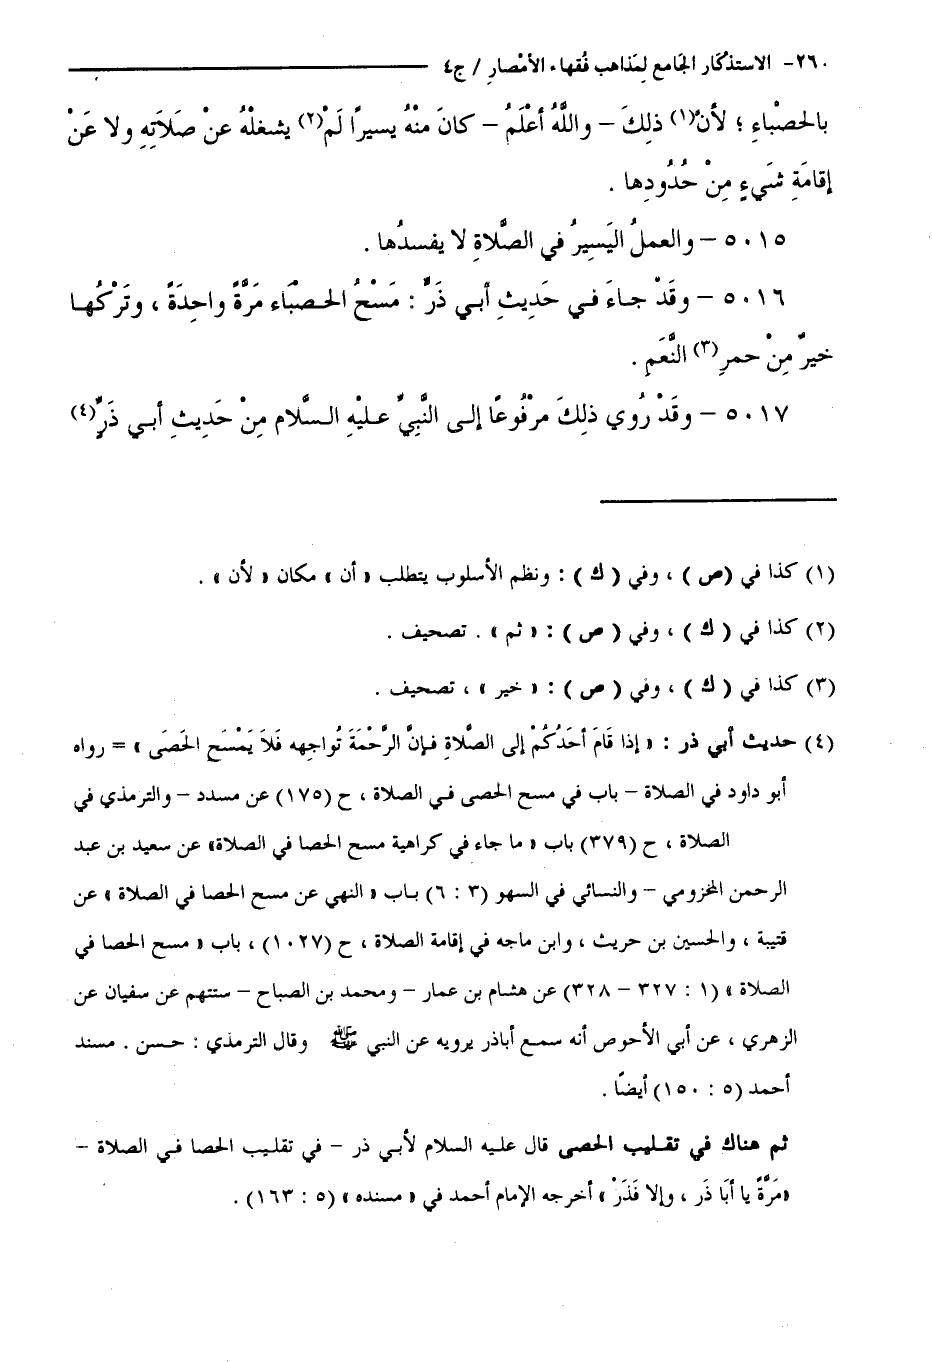 ٢٦٠- الاستذْكار الجَامع لِمَذاهب فُقهاء الأمْصارِ / ج٤
بالحَصْباءِ ؛ لأنّ(١) ذلِكَ – واللَّهُ أعْلَمُ – كانَ منْهُ يسيراً لَمْ(٢) يشغلْهُ عنْ صَلاَتِهِ ولا عَنْ
إقامَةِ شَيءٍ مِنْ حُدُودِها .
٥٠١٥ – والعملُ اليَسِيرُ في الصَّلاةِ لا يفسدُها .
٥٠١٦ – وقَدْ جاءَ في حَدِيثِ أبي ذَرٍّ : مَسْحُ الحصْبَاء مَرَّةً واحِدَةً ، وتَرْكُها
خيرٌ مِنْ حمرِ(٣) النَّعَمِ .
٥٠١٧ – وقَدْ رُوي ذلِكَ مرْفُوعًا إلى النَّبِيِّ عليْهِ السَّلام مِنْ حَدِيثِ أبي ذَرٍّ(٤)
(١) كذا في (ص) ، وفي (ك) : ونظم الأسلوب يتطلب « أن » مكان « لأن » .
(٢) كذا في (ك) ، وفي (ص) : « ثم » . تصحيف .
(٣) كذا في (ك) ، وفي (ص) : « خير » ، تصحيف .
(٤) حديث أبي ذر : « إذا قَامَ أحَدُكُمْ إلى الصَّلاةِ فإنَّ الرَّحْمَةَ تُواجهه فَلاَ يَمْسَحِ الحَصَى » = رواه
أبو داود في الصلاة – باب في مسح الحصى في الصلاة ، ح (١٧٥) عن مسدد – والترمذي في
الصلاة ، ح (٣٧٩) باب « ما جاء في كراهية مسح الحصا في الصلاة» عن سعيد بن عبد
الرحمن المخزومي – والنسائي في السهو (٣ : ٦) باب « النهي عن مسح الحصا في الصلاة » عن
قتيبة ، والحسين بن حريث ، وابن ماجه في إقامة الصلاة ، ح (١٠٢٧) ، باب « مسح الحصا في
الصلاة » (١ : ٣٢٧ – ٣٢٨) عن هشام بن عمار – ومحمد بن الصباح – ستتهم عن سفيان عن
الزهري ، عن أبي الأحوص أنه سمع أباذر يرويه عن النبي ﷺ وقال الترمذي : حسن . مسند
أحمد (٥ : ١٥٠) أيضًا .
ثم هناك في تقليب الحصى قال عليه السلام لأبي ذر – في تقليب الحصا في الصلاة –
«مَرَّةً يا أبَا ذَر ، وإلا فَذَرْ » أخرجه الإمام أحمد في « مسنده » (٥ : ١٦٣) .